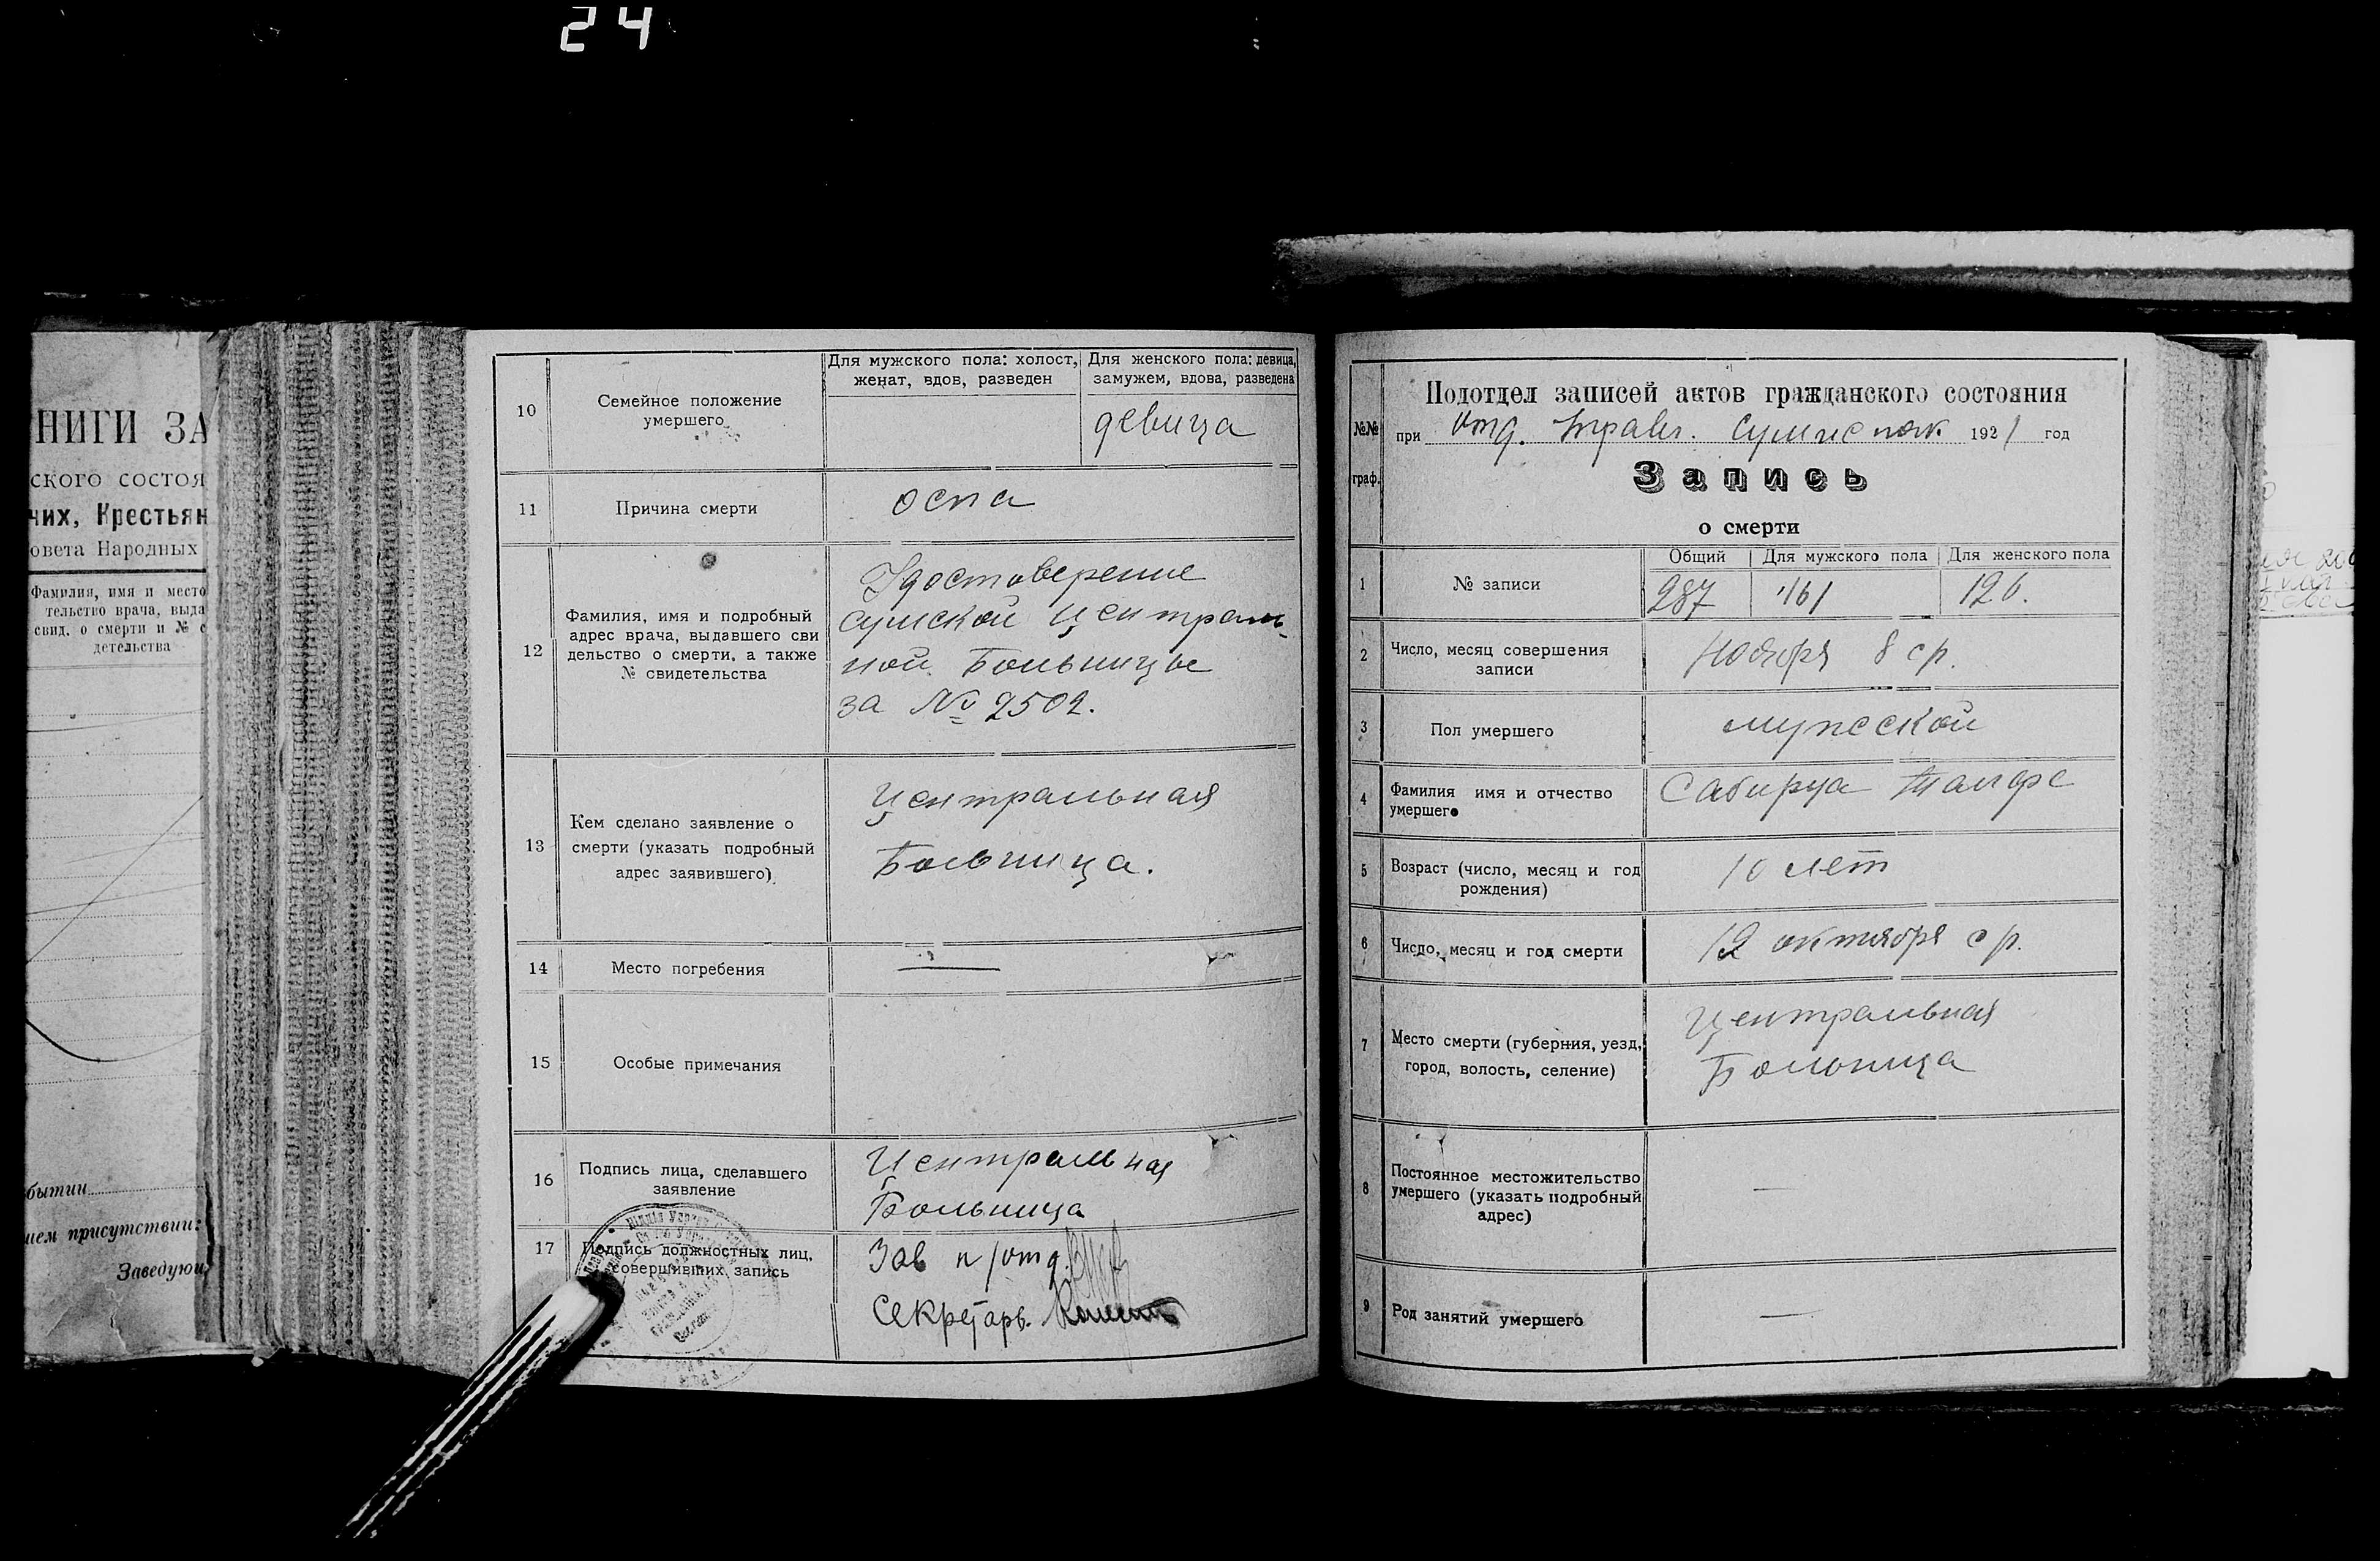 24
НИГИ ЗА
ского состоя
чих, Крестьян
овета Народных
Фамилия, имя и место
тельство врача, выда
свид. о смерти и № с
детельства
бытии
ием присутствии:
Заведую
10
Семейное положение
умершего
Для мужского пола: холост,
женат, вдов, разведен
Для женского пола: девица,
замужем, вдова, разведена
девица
11
Причина смерти
оспа
12
Фамилия, имя и подробный
адрес врача, выдавшего сви
дельство о смерти, а также
№ свидетельства
Удостоверение
Сумской Централь-
ной Больницы
за № 2502.
13
Кем сделано заявление о
смерти (указать подробный
адрес заявившего)
Центральная
Больница.
14
Место погребения
—
15
Особые примечания
16
Подпись лица, сделавшего
заявление
Центральная
Больница
17
Подпись должностных лиц,
совершивших запись
Зав п/отд.
Секретарь.
№№
граф.
Подотдел записей актов гражданского состояния
при Отд. Управл. 1921 год
Запись
о смерти
1
№ записи
Общий
Для мужского пола
Для женского пола
287
161
126.
2
Число, месяц совершения
записи
Ноября 8 ср.
3
Пол умершего
мужской
4
Фамилия имя и отчество
умершего
5
Возраст (число, месяц и год
рождения)
10 лет
6
Число, месяц и год смерти
12 октября ср.
7
Место смерти (губерния, уезд,
город, волость, селение)
Центральная
Больница
8
Постоянное местожительство
умершего (указать подробный
адрес)
—
9
Род занятий умершего
—